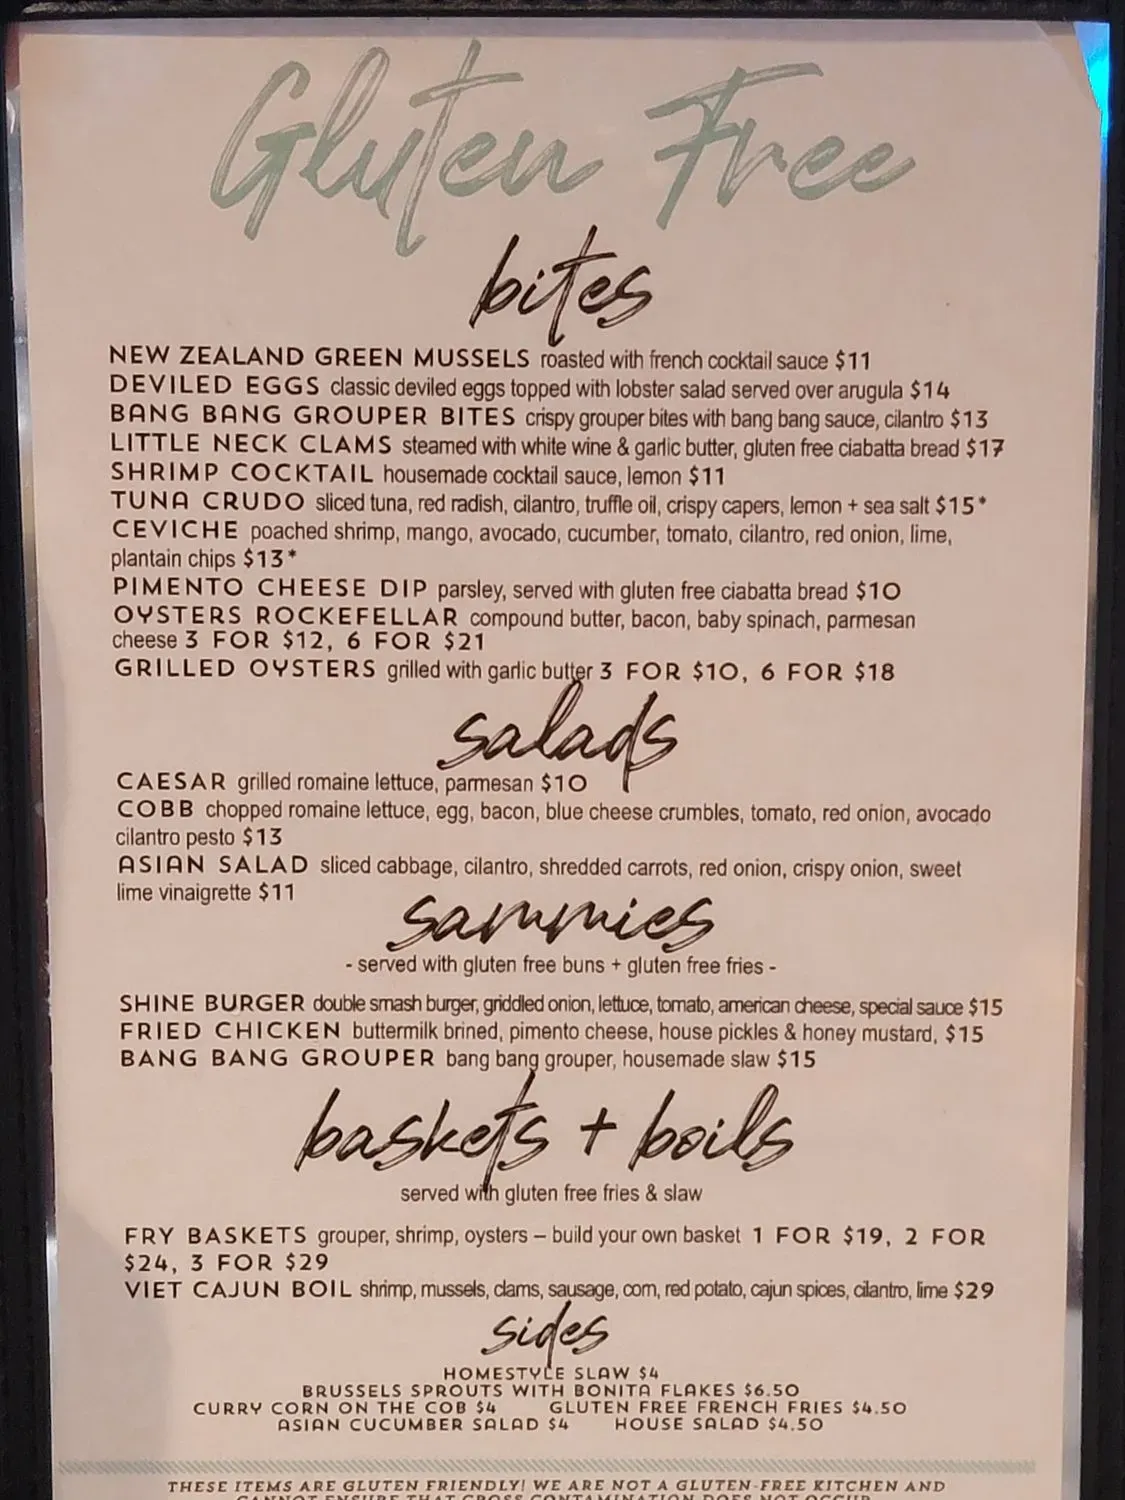 Gluten Free
bites
NEW ZEALAND GREEN MUSSELS roasted with french cocktail sauce $11
DEVILED EGGS classic deviled eggs topped with lobster salad served over arugula $14
BANG BANG GROUPER BITES crispy grouper bites with bang bang sauce, cilantro $13
LITTLE NECK CLAMS steamed with white wine & garlic butter, gluten free ciabatta bread $17
SHRIMP COCKTAIL housemade cocktail sauce, lemon $11
TUNA CRUDO sliced tuna, red radish, cilantro, truffle oil, crispy capers, lemon + sea salt $15*
CEVICHE poached shrimp, mango, avocado, cucumber, tomato, cilantro, red onion, lime,
plantain chips $13*
PIMENTO CHEESE DIP parsley, served with gluten free ciabatta bread $10
OYSTERS ROCKEFELLAR compound butter, bacon, baby spinach, parmesan
cheese 3 FOR $12, 6 FOR $21
GRILLED OYSTERS grilled with garlic butter 3 FOR $10, 6 FOR $18
salads
CAESAR grilled romaine lettuce, parmesan $10
COBB chopped romaine lettuce, egg, bacon, blue cheese crumbles, tomato, red onion, avocado
cilantro pesto $13
ASIAN SALAD sliced cabbage, cilantro, shredded carrots, red onion, crispy onion, sweet
lime vinaigrette $11
sammies
- served with gluten free buns + gluten free fries -
SHINE BURGER double smash burger, griddled onion, lettuce, tomato, american cheese, special sauce $15
FRIED CHICKEN buttermilk brined, pimento cheese, house pickles & honey mustard, $15
BANG BANG GROUPER bang bang grouper, housemade slaw $15
baskets + boils
served with gluten free fries & slaw
FRY BASKETS grouper, shrimp, oysters – build your own basket 1 FOR $19, 2 FOR
$24, 3 FOR $29
VIET CAJUN BOIL shrimp, mussels, clams, sausage, corn, red potato, cajun spices, cilantro, lime $29
sides
HOMESTYLE SLAW $4
BRUSSELS SPROUTS WITH BONITA FLAKES $6.50
CURRY CORN ON THE COB $4 GLUTEN FREE FRENCH FRIES $4.50
ASIAN CUCUMBER SALAD $4 HOUSE SALAD $4.50
THESE ITEMS ARE GLUTEN FRIENDLY! WE ARE NOT A GLUTEN-FREE KITCHEN AND
CANNOT ENSURE THAT CROSS CONTAMINATION DOES NOT OCCUR